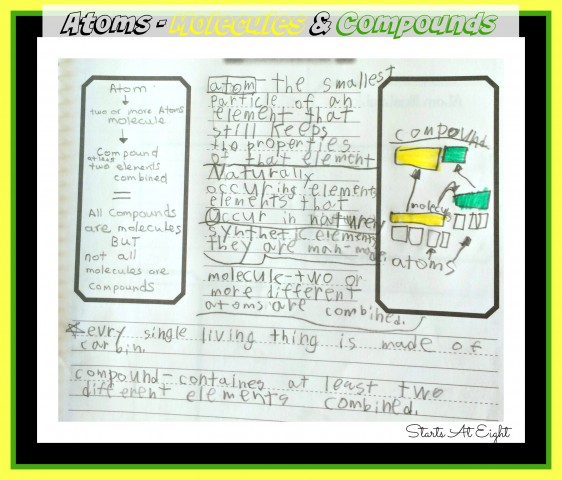 Atoms - Molecules & Compounds
Atom
two or more Atoms
molecule
Compound
at least
two elements
combined
=
All Compounds
are molecules
BUT
not all
molecules are
compounds
atom - the smallest
particle of an
element that
still keeps
the properties
of that element
Naturally
occuring elements
elements that
Occur in naturely
synthetic elements
they are man-made
molecule-two or
more different
atoms are combined.
compound
molecule
atoms
*evry single living thing is made of
carbin.
compound-containes at least two
different elements combined.
Starts At Eight